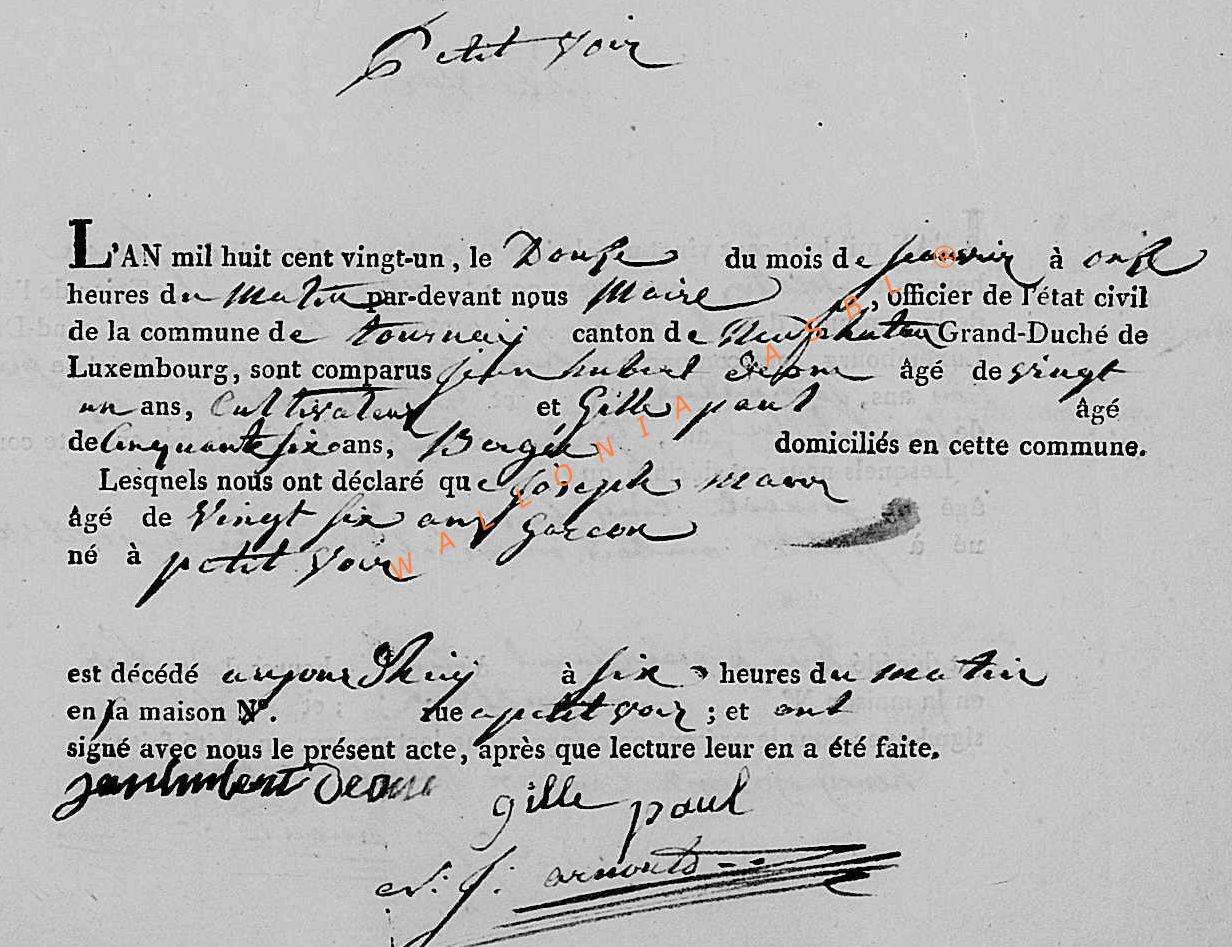 Petit Voir
L'AN mil huit cent vingt-un, le Douse du mois de janvier à onse
heures du matin par-devant nous Maire, officier de l'état civil
de la commune de tournay canton de Neufchateau Grand-Duché de
Luxembourg, sont comparus jean hubert âgé de vingt
un ans, Cultivateur et Gille paul âgé
de Cinquante six ans, Bergér domiciliés en cette commune.
Lesquels nous ont déclaré que joseph
âgé de Vingt six ans Garcon
né à petit Voir
est décédé à six heures du matin
en la maison N°. rue a petit voir ; et ont
signé avec nous le présent acte, après que lecture leur en a été faite.
gille paul
arnould
WALLONIA ASBL ®